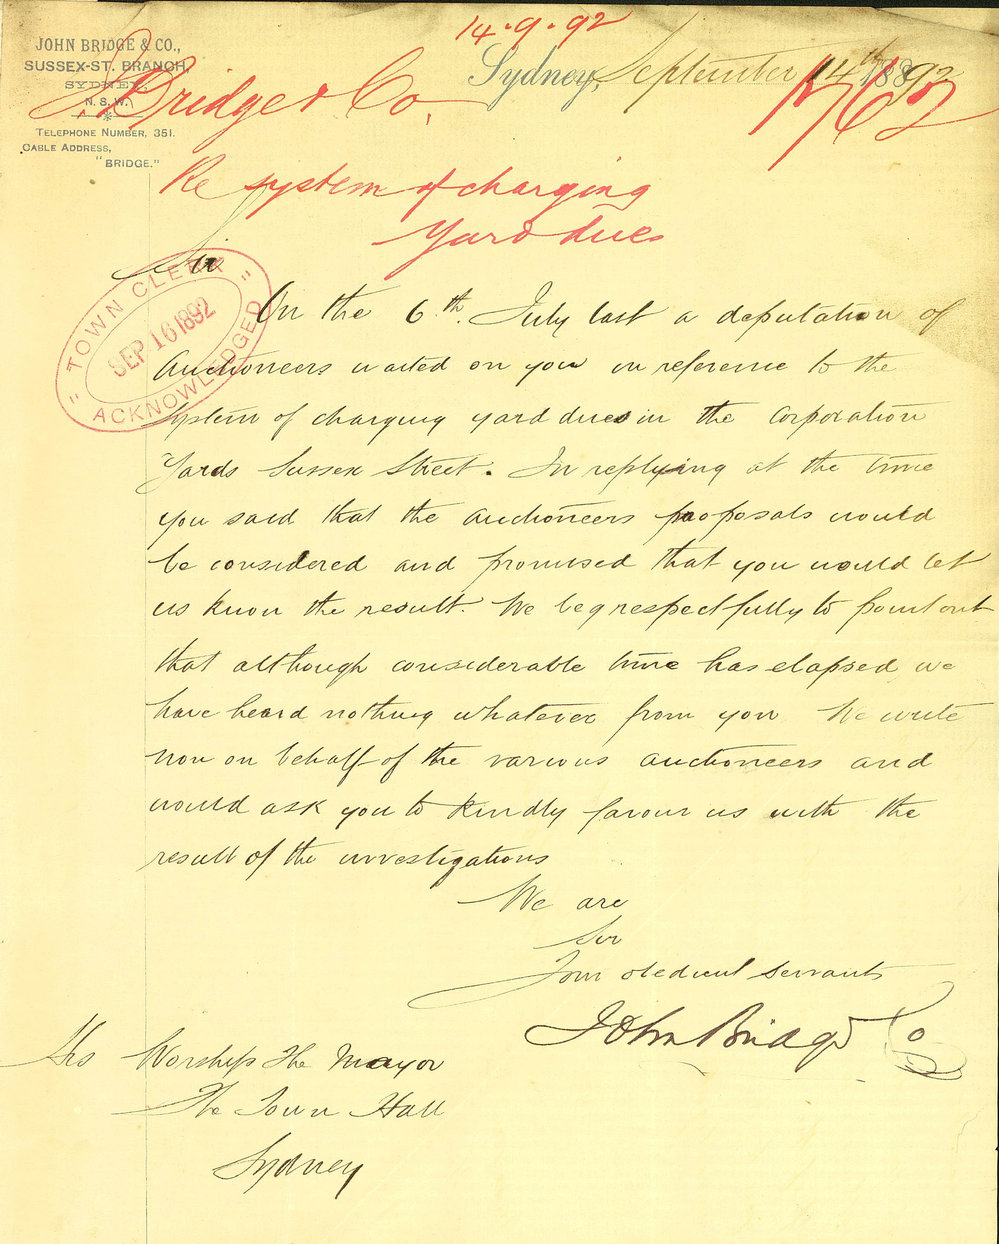 14.9.92
JOHN BRIDGE & CO.,
SUSSEX-ST. BRANCH,
SYDNEY,
N. S. W.
TELEPHONE NUMBER, 351.
CABLE ADDRESS,
"BRIDGE."
Sydney, September 14th 1892
J. Bridge & Co.
Re system of charging
Yard dues
Sir
TOWN CLERK
SEP 16 1892
ACKNOWLEDGED
On the 6th. July last a deputation of
Auctioneers waited on you in reference to the
system of charging yard dues in the Corporation
Yards Sussex Street. In replying at the time
you said that the auctioneers proposals would
be considered and promised that you would let
us know the result. We beg respectfully to point out
that although considerable time has elapsed, we
have heard nothing whatever from you We write
now on behalf of the various auctioneers and
would ask you to kindly favour us with the
result of the investigations
We are
Sir
Your obedient servants
John Bridge & Co
His Worship The Mayor
The Town Hall
Sydney